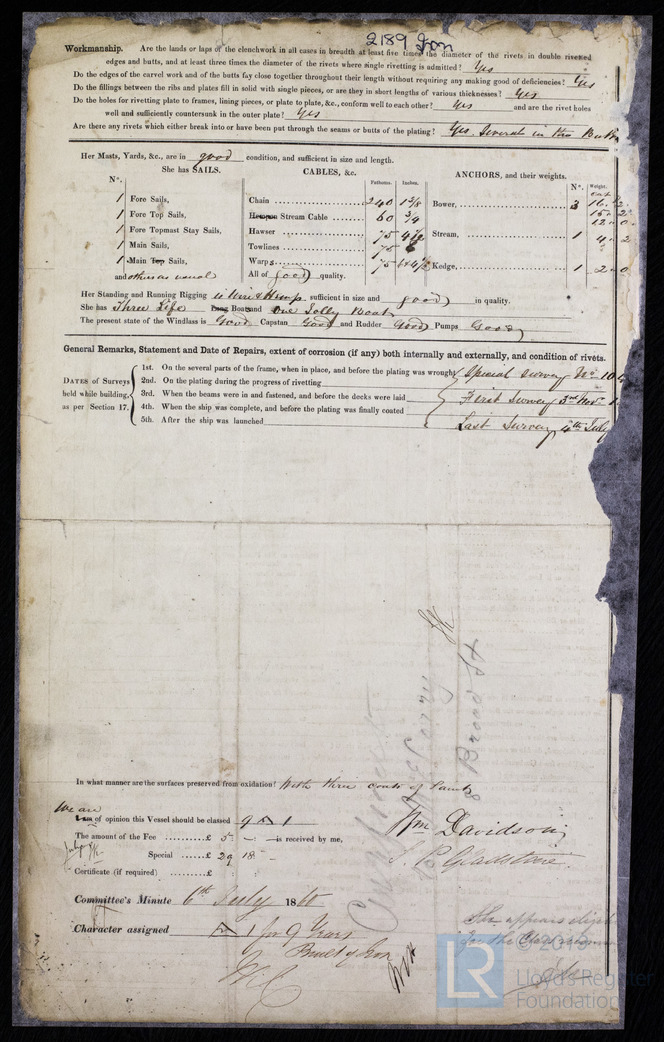 2189 Iron
Workmanship. Are the lands or laps of the clenchwork in all cases in breadth at least five times the diameter of the rivets in double rivetted
edges and butts, and at least three times the diameter of the rivets where single rivetting is admitted? Yes
Do the edges of the carvel work and of the butts fay close together throughout their length without requiring any making good of deficiencies? Yes
Do the fillings between the ribs and plates fill in solid with single pieces, or are they in short lengths of various thicknesses? Yes
Do the holes for rivetting plate to frames, lining pieces, or plate to plate, &c., conform well to each other? Yes and are the rivet holes
well and sufficiently countersunk in the outer plate? Yes
Are there any rivets which either break into or have been put through the seams or butts of the plating? Yes. Several in the Butts
Her Masts, Yards, &c., are in good condition, and sufficient in size and length.
She has SAILS. CABLES, &c. ANCHORS, and their weights.
N°. Fathoms. Inches. N°. Weight.
1 Fore Sails, Chain 240 1 3/8 Bower, 3 16. 2.
1 Fore Top Sails, Hempen Stream Cable 60 3/4 15. 2
1 Fore Topmast Stay Sails, Hawser 75 4 1/2 Stream, 1 4. 2
1 Main Sails, Towlines 75 6
1 Main Top Sails, Warps 75 Kedge, 1 2. 0
and others as usual All of good quality.
Her Standing and Running Rigging is Wire & Hemp sufficient in size and good in quality.
She has Three Life Long Boats and One Jolly Boat
The present state of the Windlass is Good Capstan Good and Rudder Good Pumps Good
General Remarks, Statement and Date of Repairs, extent of corrosion (if any) both internally and externally, and condition of rivets.
DATES of Surveys held while building, as per Section 17.
1st. On the several parts of the frame, when in place, and before the plating was wrought Special survey No. 10
2nd. On the plating during the progress of rivetting
3rd. When the beams were in and fastened, and before the decks were laid First Survey 3rd Nov
4th. When the ship was complete, and before the plating was finally coated
5th. After the ship was launched Last Survey 4th July
Broad St
In what manner are the surfaces preserved from oxidation? With three coats of Paint
We are
I am of opinion this Vessel should be classed 9 A 1
The amount of the Fee £ 5 - - is received by me, Wm Davidson
Special £ 29 18 - S. P. Gladstone
Certificate (if required) £
Committee's Minute 6th July 1860
Character assigned A 1 for 9 Years
Built of Iron
She appears
for the Class
LR
© 2019
Lloyd's Register
Foundation